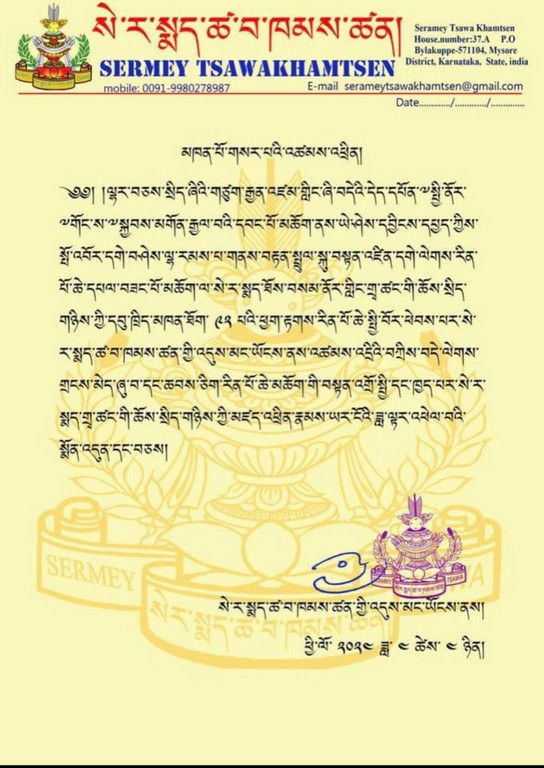 སེ་ར་སྨད་ཚ་བ་ཁམས་ཚན།
SERMEY TSAWAKHAMTSEN
mobile: 0091-9980278987
Seramey Tsawa Khamtsen
House.number:37.A P.O
Bylakuppe-571104, Mysore
District, Karnataka, State, india
E-mail serameytsawakhamtsen@gmail.com
Date............./............./..............
མཁན་པོ་གསར་པའི་འཚམས་འཕྲིན།
༄༅། །ལྷར་བཅས་སྲིད་ཞིའི་གཙུག་རྒྱན་འཛམ་གླིང་ཞི་བདེའི་དེད་དཔོན་༧སྤྱི་ནོར་
༧གོང་ས་༧སྐྱབས་མགོན་རྒྱལ་བའི་དབང་པོ་མཆོག་ནས་ཡེ་ཤེས་དབྱིངས་དཔྱད་ཀྱིས་
སྤོ་འབོར་དགེ་བཤེས་ལྷ་རམས་པ་གནས་བརྟན་སྤྲུལ་སྐུ་བསྟན་འཛིན་དགེ་ལེགས་རིན་
པོ་ཆེ་དཔལ་བཟང་པོ་མཆོག་ལ་སེ་ར་སྨད་ཐོས་བསམ་ནོར་གླིང་གྲྭ་ཚང་གི་ཆོས་སྲིད་
གཉིས་ཀྱི་དབུ་ཁྲིད་མཁན་ཐོག་ ༩༢ པའི་ཕྱག་རྟགས་རིན་པོ་ཆེ་སྤྱི་བོར་ཕེབས་པར་སེ་
ར་སྨད་ཚ་བ་ཁམས་ཚན་གྱི་འདུས་མང་ཡོངས་ནས་འཚམས་འདྲིའི་བཀྲིས་བདེ་ལེགས་
གྲངས་མེད་ཞུ་བ་དང་ཆབས་ཅིག་རིན་པོ་ཆེ་མཆོག་གི་བསྟན་འགྲོ་སྤྱི་དང་ཁྱད་པར་སེ་ར་
སྨད་གྲྭ་ཚང་གི་ཆོས་སྲིད་གཉིས་ཀྱི་མཛད་འཕྲིན་རྣམས་ཡར་ངོའི་ཟླ་ལྟར་འཕེལ་བའི་
སྨོན་འདུན་དང་བཅས།
SERMEY
སེ་ར་སྨད་ཚ་བ་ཁམས་ཚན
སེ་ར་སྨད་ཚ་བ་ཁམས་ཚན་གྱི་འདུས་མང་ཡོངས་ནས།
ཕྱི་ལོ་ ༢༠༢༤ ཟླ་ ༤ ཚེས་ ༤ ཉིན།